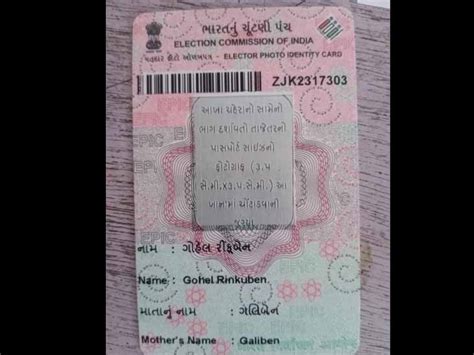 ભારતનું ચૂંટણી પંચ
ELECTION COMMISSION OF INDIA
મતદાર ફોટો ઓળખપત્ર - ELECTOR PHOTO IDENTITY CARD
ZJK2317303
આખા ચહેરાનો સામેનો
ભાગ દર્શાવતો તાજેતરનો
પાસપોર્ટ સાઇઝનો
ફોટોગ્રાફ (૩.૫
સે.મી.x૩.૫ સે.મી.) આ
ખાનામાં ચોંટાડવાની
જગ્યા
નામ : ગોહેલ રીંકુબેન
Name : Gohel Rinkuben
માતાનું નામ : ગલિબેન
Mother's Name : Galiben